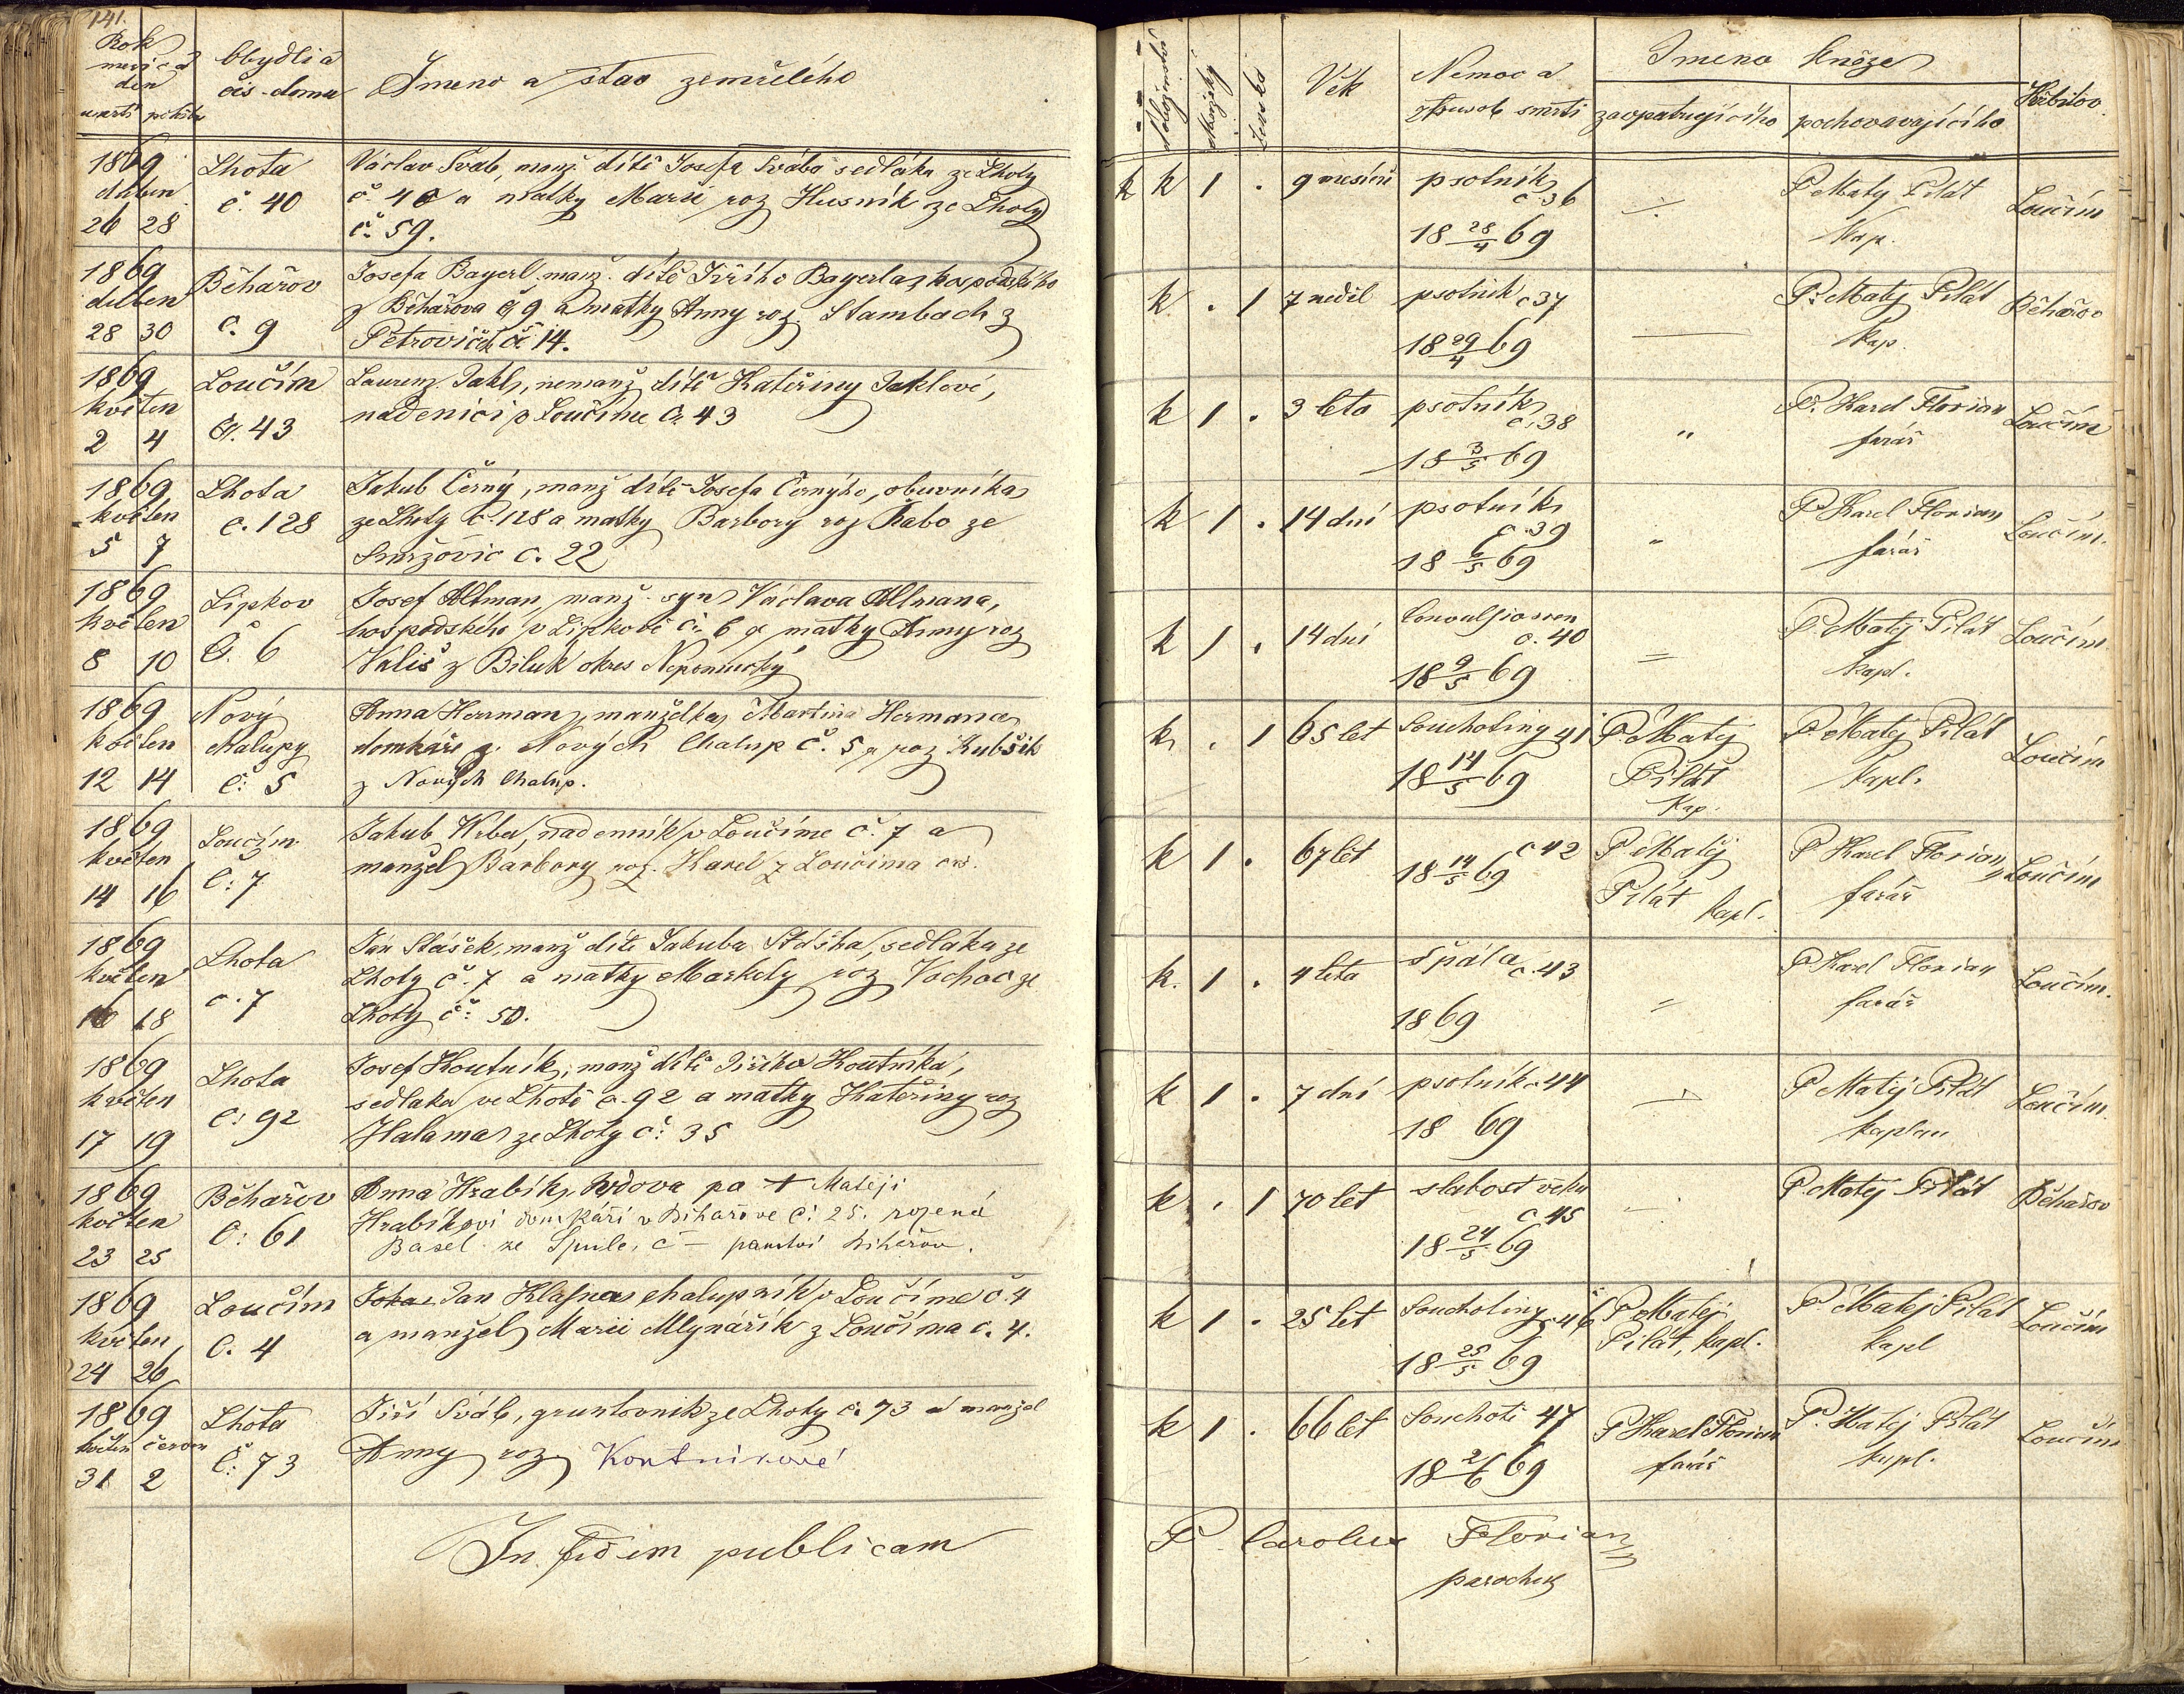 141.
Rok
měsíc a
den
úmrtí pohřbu
Obydlí a
čís. domu
Jmeno a stav zemřelého
1869
duben
26 28
Lhota
č. 40
Václav Šváb, manž. dítě Josefa Švába sedláka ze Lhoty
č. 40 a matky Marie roz Husník ze Lhoty
č. 59.
1869
duben
28 30
Běhařov
č. 9
Josefa Bayerl, manž. dítě Jiřího Bayerla, hospodského
z Běhařova č 9 a matky Anny roz. Stambach z
Petrovic č. 14.
1869
květen
2 4
Loučím
Č. 43
Laurenz Jakl, nemanž dítě Kateřiny Jaklové,
nadenici v Loučíme č. 43
1869
květen
5 7
Lhota
č. 128
Jakub Černý, manž dítě Josefa Černýho, obuvníka
ze Lhoty č. 128 a matky Barbory roz Řabo ze
Smržovic č. 22
1869
květen
8 10
Lipkov
Č. 6
Josef Altman, manž. syn Václava Altmana,
hospodského v Lipkově č. 6 a matky Anny roz
Vališ z Biluk okres Nepomucký
1869
květen
12 14
Nový
Chalupy
č. 5
Anna Herman, manželka Martina Hermana
domkáře z Nových Chalup č. 5, roz Kubšik
z Nových Chalup.
1869
květen
14 16
Loučím
Č. 7
Jakub Vrba, nadenník v Loučíme č. 7 a
manžel Barbory roz. Karel z Loučima
1869
květen
16 18
Lhota
č. 7
Jan Stašek, manž dítě Jakuba Staška, sedláka ze
Lhoty č. 7 a matky Markety roz Vachac ze
Lhoty č. 50.
1869
květen
17 19
Lhota
Č. 92
Josef Koutník, manž dítě Jiřího Koutníka,
sedlaka ve Lhotě č. 92 a matky Kateřiny roz
Halama ze Lhoty č. 35
1869
květen
23 25
Běhařov
Č. 61
Anna Hrabík, vdova po + Matěji
Hrabíkovi domkáři v Běhařove č. 25. rozená
Basel ze Spule, č — panství Běhařov.
1869
květen
24 26
Loučím
Č. 4
Jan Klasna chalupník v Loučíme č. 4
a manžel Marii Mlynářík z Loučíma č. 4.
1869
květen červen
31 2
Lhota
Č. 73
Jiří Šváb, gruntovnik ze Lhoty č. 73 a manžel
Anny roz Koutníkové
In fidem publicam
Náboženství
Mužský
Ženské
Věk
Nemoc a
způsob smrti
Jmeno kněze
zaopatrujícího
pochovavajícího
Hřbitov
k k 1 . 9 mesíců
psotník
č 36
18 28/4 69
P Matěj Pilát
Kap.
Loučím
k . 1 7 neděl
psotník č 37
18 29/4 69
P. Matěj Pilát
kap.
Běhařov
k 1 . 3 leta
psotník
č. 38
18 3/5 69
"
P. Karel Florian
farář
Loučím
k 1 . 14 dní
psotník
č 39
18 6/5 69
"
P Karel Florian
farář
Loučím.
k 1 . 14 dní
Convulsionen
č. 40
18 9/5 69
P. Matěj Pilát
kapl.
Loučím
k . 1 65 let
Souchotiny 41
18 14/5 69
P. Matěj
Pilát
Kap.
P. Matěj Pilát
kapl.
Loučím
k 1 . 67 let
č 42
18 14/5 69
P Matěj
Pilát kapl.
P Karel Florian,
farář
Loučím
k. 1 . 4 leta
špála č. 43
1869
P Karel Florian
farář
Loučím.
k 1 . 7 dní
psotník č 44
18 69
P Matěj Pilát
kaplan
Loučím
k . 1 70 let
slabost věku
č 45
18 24/5 69
P. Matěj Pilát
Běhařov
k 1 . 25 let
Souchotiny č 46
18 25/5 69
P Matěj
Pilát, kapl.
P Matěj Pilát
kapl
Loučím
k 1 . 66 let
Souchotě 47
18 2/6 69
P Karel Florian
farář
P. Matěj Pilát
kapl.
Loučím
P. Carolus Florian
parochus